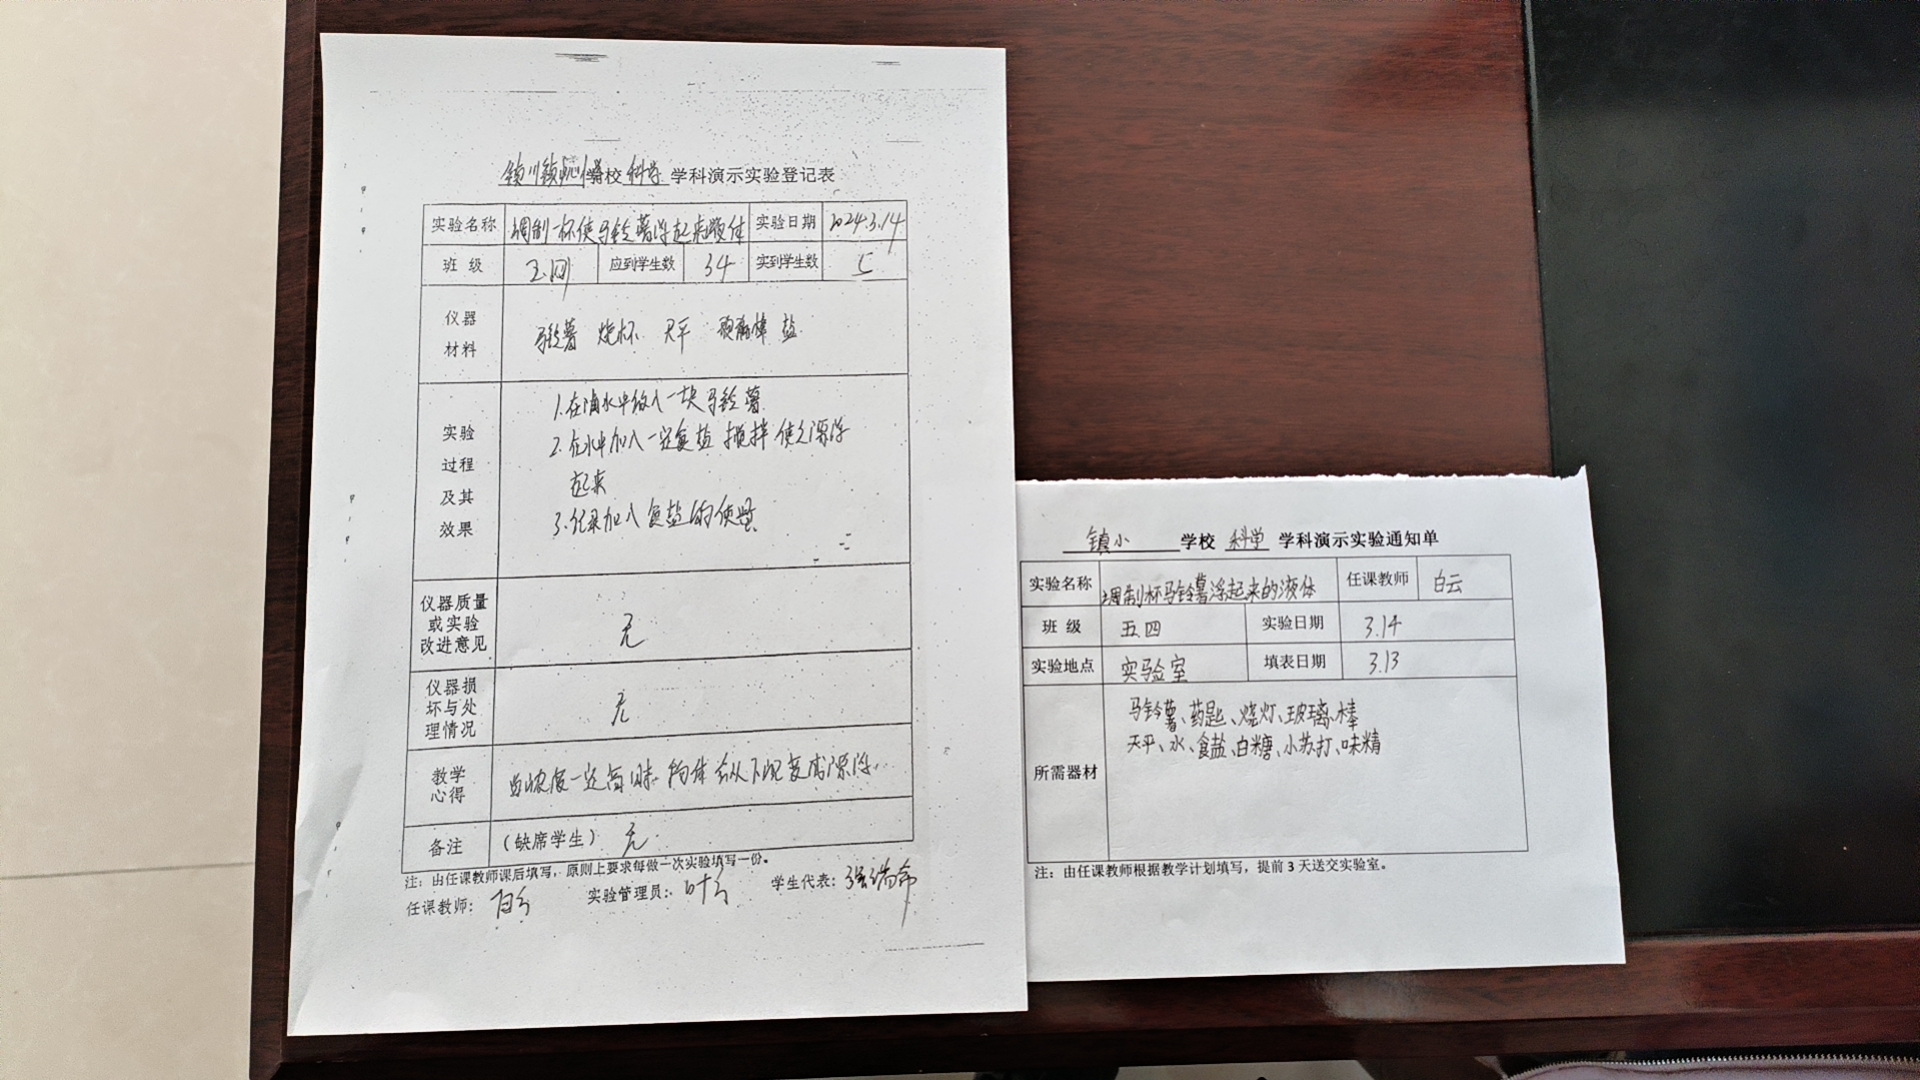 镇川镇中心小学校 科学 学科演示实验登记表
实验名称 调制一杯使马铃薯浮起来液体 实验日期 2024.3.14
班 级 五.四 应到学生数 34 实到学生数
仪器
材料
马铃薯 烧杯 天平 玻璃棒 盐
实验
过程
及其
效果
1.在清水中放入一块马铃薯
2.在水中加入一定量盐 搅拌 使之漂浮
起来
3.记录加入食盐的
仪器质量
或实验
改进意见
无
仪器损
坏与处
理情况
无
教学
心得
当浓度一定高时. 物体会从下沉变成漂浮.
备注 (缺席学生) 无.
注: 由任课教师课后填写, 原则上要求每做一次实验填写一份。
任课教师: 白云 实验管理员: 叶 学生代表: 张
镇小 学校 科学 学科演示实验通知单
实验名称 调制杯马铃薯浮起来的液体 任课教师 白云
班 级 五.四 实验日期 3.14
实验地点 实验室 填表日期 3.13
所需器材
马铃薯、药匙、烧灯、玻璃棒
天平、水、食盐、白糖、小苏打、味精
注: 由任课教师根据教学计划填写, 提前 3 天送交实验室。